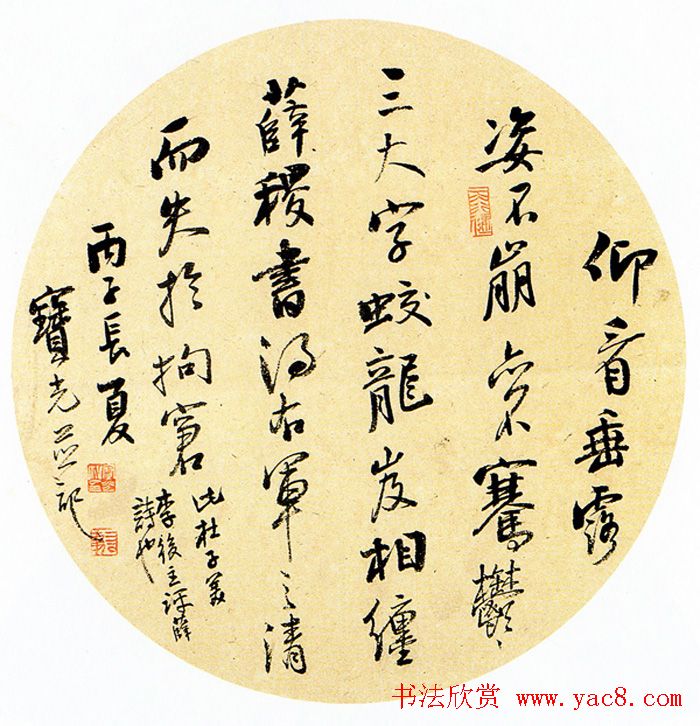 仰看垂露
姿不崩亦不騫鬱〻
三大字蛟龍岌相纏
薛稷書得右軍之清
而失於拘窘
此杜子美
李後主評薛
詩也
丙子長夏
寶光並記
书法欣赏 www.yac8.com